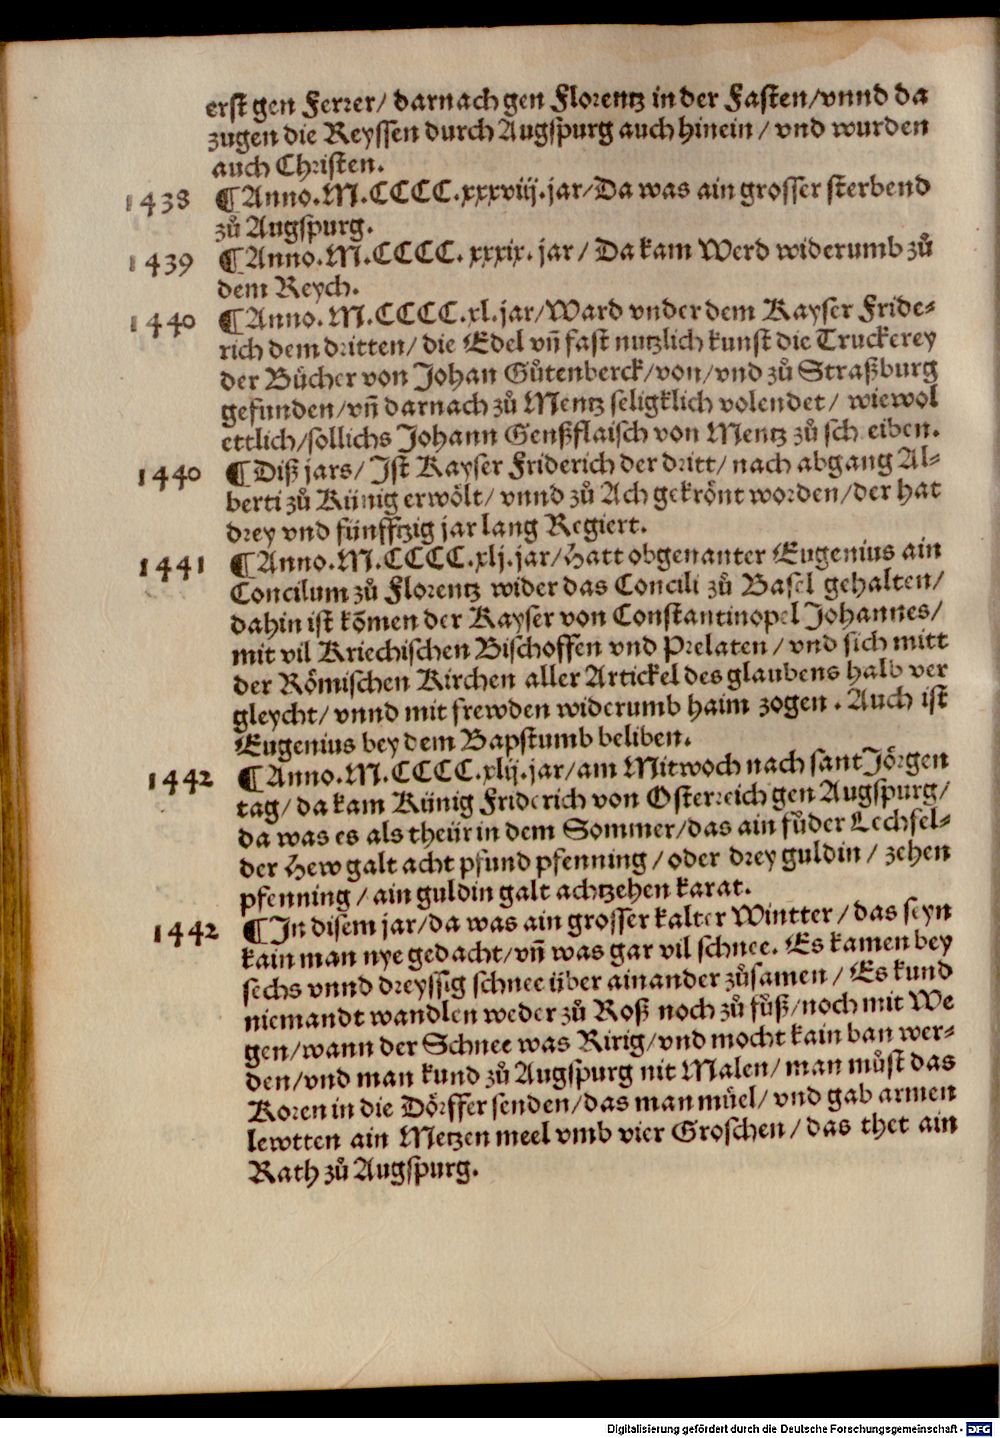 erst gen Ferrer/ darnach gen Florentz in der Fasten/vnnd da
zugen die Reyssen durch Augspurg auch hinein / vnd wurden
auch Christen.
1438 ¶ Anno.M.CCCC.xxxviij.jar/Da was ain grosser sterbend
zů Augspurg.
1439 ¶ Anno.M.CCCC.xxxix.jar / Da kam Werd widerumb zů
dem Reych.
1440 ¶ Anno.M.CCCC.xl.jar/Ward vnder dem Kayser Fride-
rich dem dritten/ die Edel vñ fast nutzlich kunst die Truckerey
der Bůcher von Johan Gůtenberck/von/vnd zů Straßburg
gefunden/vñ darnach zů Mentz seligklich volendet/ wiewol
ettlich/sollichs Johann Genßflaisch von Mentz zů sch eiben.
1440 ¶ Diß jars/ Jst Kayser Friderich der dritt/ nach abgang Al-
berti zů Künig erwölt/ vnnd zů Ach gekrönt worden/der hat
drey vnd fünfftzig jar lang Regiert.
1441 ¶ Anno.M.CCCC.xlj.jar/Hatt obgenanter Eugenius ain
Concilum zů Florentz wider das Concili zů Basel gehalten/
dahin ist kõmen der Kayser von Constantinopel Johannes/
mit vil Kriechischen Bischoffen vnd Prelaten/ vnd sich mitt
der Römischen Kirchen aller Artickel des glaubens halb ver
gleycht/ vnnd mit frewden widerumb haim zogen. Auch ist
Eugenius bey dem Bapstumb beliben.
1442 ¶ Anno.M.CCCC.xlij.jar/am Mitwoch nach sant Jörgen
tag/ da kam Künig Friderich von Osterreich gen Augspurg/
da was es als theür in dem Sommer/das ain fůder Lechfel-
der Hew galt acht pfund pfenning/oder drey guldin/ zehen
pfenning / ain guldin galt achtzehen karat.
1442 ¶ Jn disem jar/da was ain grosser kalter Wintter/das seyn
kain man nye gedacht/vñ was gar vil schnee. Es kamen bey
sechs vnnd dreyssig schnee über ainander zůsamen/ Es kund
niemandt wandlen weder zů Roß noch zů fůß/noch mit We
gen/wann der Schnee was Ririg/vnd mocht kain ban wer-
den/vnd man kund zů Augspurg nit Malen/man můst das
Koren in die Dörffer senden/das man můel/ vnd gab armen
lewtten ain Metzen meel vmb vier Groschen/ das thet ain
Rath zů Augspurg.
Digitalisierung gefördert durch die Deutsche Forschungsgemeinschaft - DFG